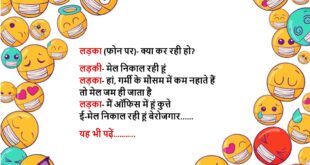 लड़का (फोन पर)- क्या कर रही हो?
लड़की- मेल निकाल रही हूं
लड़का- हां, गर्मी के मौसम में कम नहाते हैं
तो मेल जम ही जाता है
लड़का- मैं ऑफिस में हूं कुत्ते
ई-मेल निकाल रही हूं बेरोजगार......
यह भी पढ़ें...........